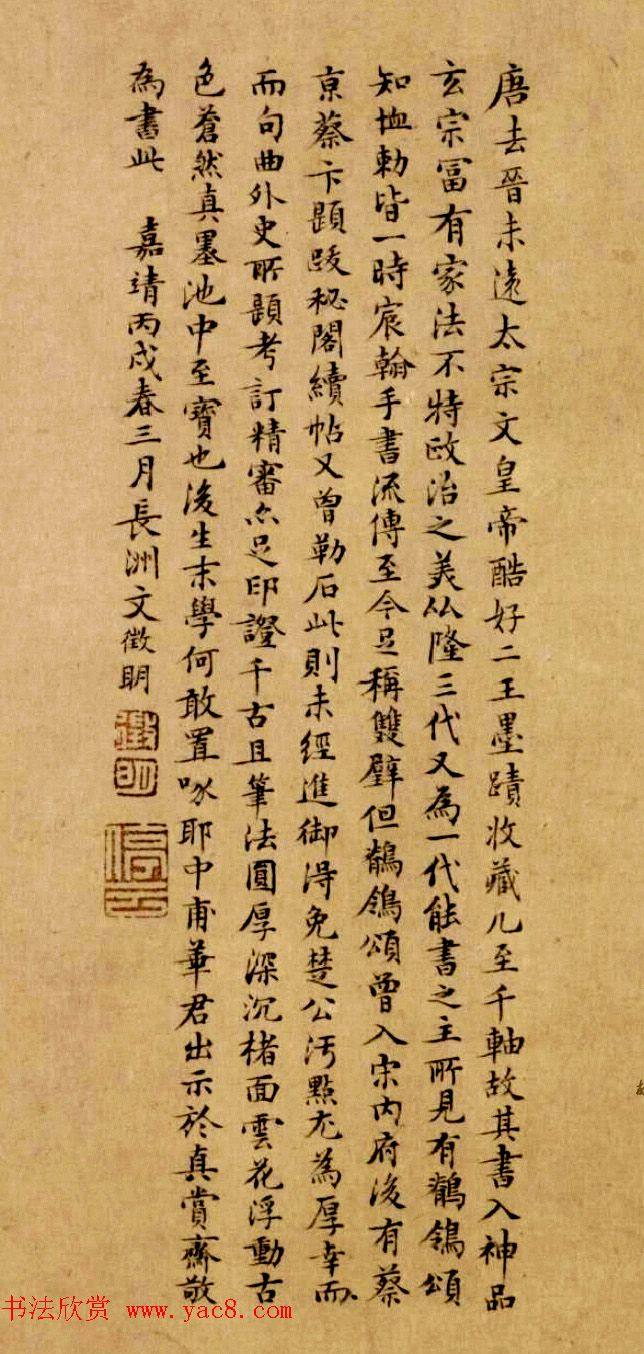 唐去晉未遠太宗文皇帝酷好二王墨蹟收藏凡至千軸故其書入神品
玄宗冨有家法不特政治之美仏隆三代又為一代能書之主所見有鶺鴒頌
知恤勅皆一時宸翰手書流傳至今足稱雙璧但鶺鴒頌曾入宋内府後有蔡
京蔡卞題跋秘閣續帖又曾勒石此則未經進御得免楚公汚點尤為厚幸而
而句曲外史所題考訂精審亦足印證千古且筆法圓厚深沉楮面雲花浮動古
色蒼然真墨池中至寶也後生末學何敢置喙耶中甫華君出示於真賞齋敬
為書此 嘉靖丙戌春三月長洲文徵明
徵明
书法欣赏 www.yac8.com